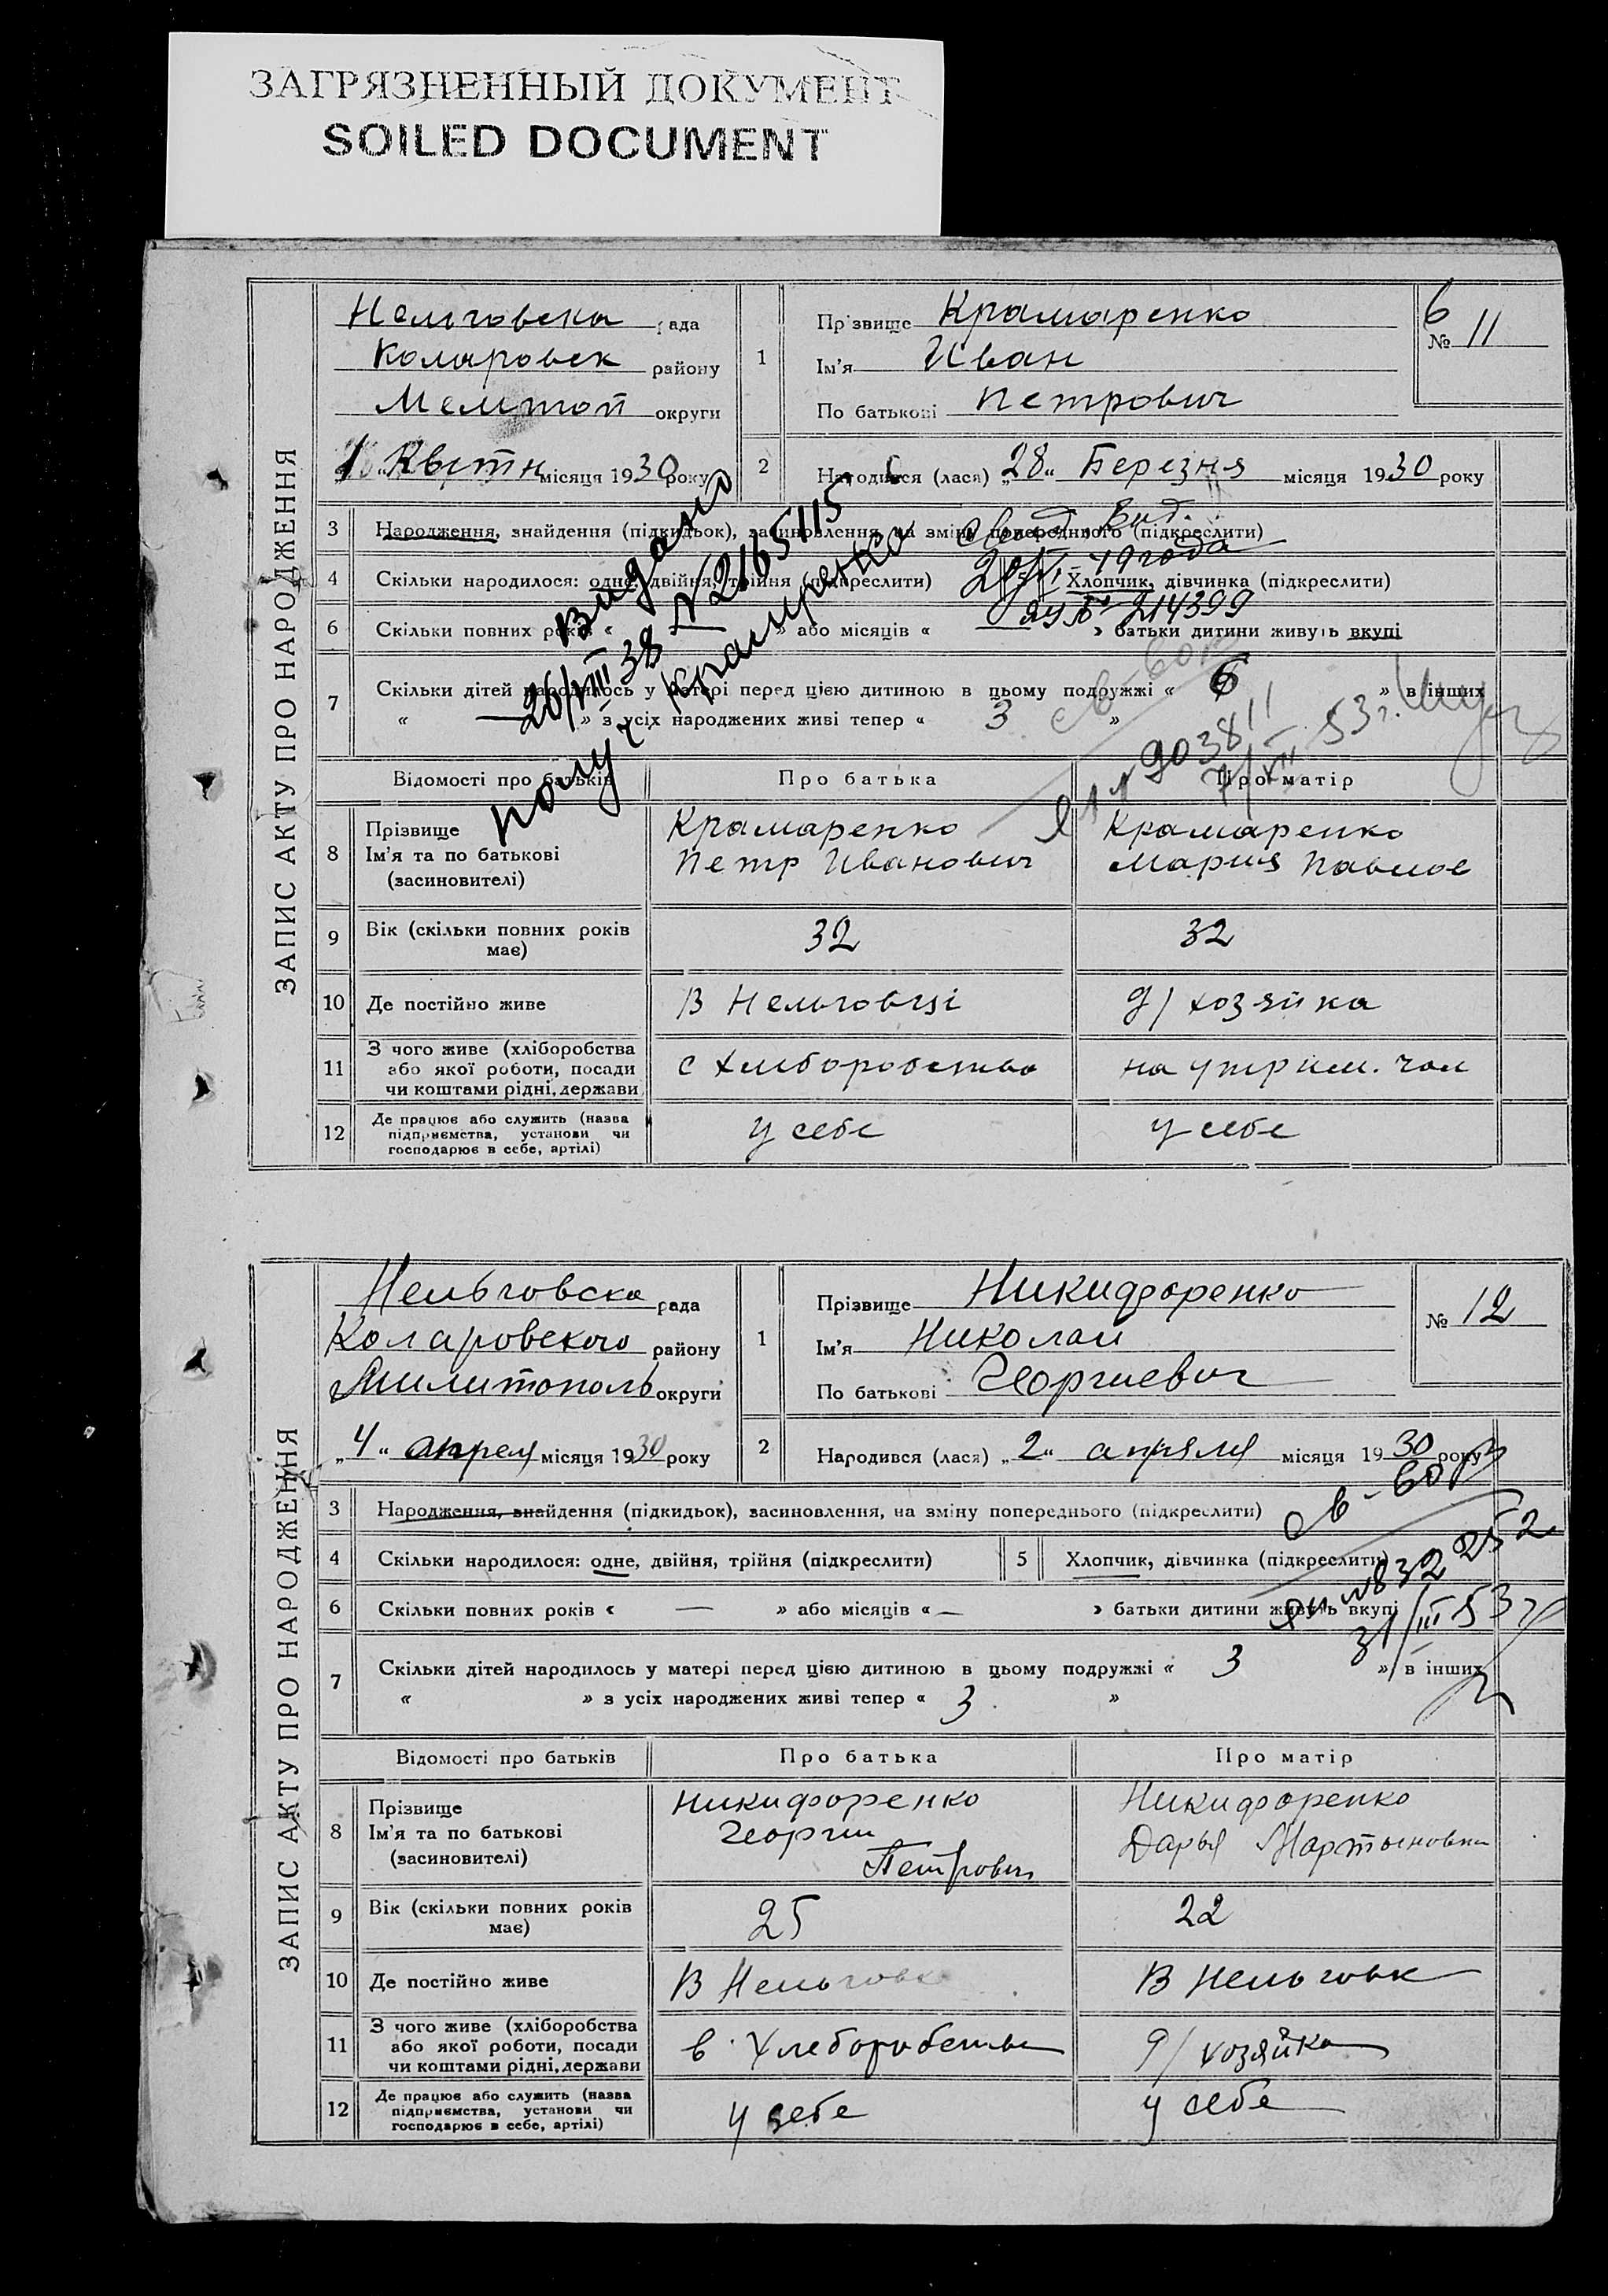 ЗАГРЯЗНЕННЫЙ ДОКУМЕНТ
SOILED DOCUMENT
ЗАПИС АКТУ ПРО НАРОДЖЕННЯ
Нельговска рада
Коларовск району
Мелитоп округи
1 " Квітн місяця 1930 року
1
Прізвище Крамаренко
Ім'я Иван
По батькові Петрович
6
№ 11
2
Народився (лася) „28" Березня місяця 1930 року
3 Народження, знайдення (підкидьок), засиновлення, на зміну попереднього (підкреслити)
4 Скільки народилося: одне, двійня, трійня (підкреслити)
Хлопчик, дівчинка (підкреслити)
6 Скільки повних років « » або місяців « — » батьки дитини живуть вкупі
7 Скільки дітей народилось у матері перед цією дитиною в цьому подружжі « 6 » в інших
« — » з усіх народжених живі тепер « 3 »
видано
26/VIII 38 № 2165115
получ Крамаренко
свид. выд.
19 года
214399
903811
7/XII 53 г.
Відомості про батьків
Про батька
Про матір
8 Прізвище
Ім'я та по батькові
(засиновителі)
Крамаренко
Петр Иванович
Крамаренко
Мария Павлов
9 Вік (скільки повних років
має)
32
32
10 Де постійно живе
В Нельговці
д/ хозяйка
11 З чого живе (хліборобства
або якої роботи, посади
чи коштами рідні, держави
с хлиборобства
на утрим. чол
12 Де працює або служить (назва
підприємства, установи чи
господарює в себе, артілі)
у себе
у себе
ЗАПИС АКТУ ПРО НАРОДЖЕННЯ
Нельговска рада
Коларовского району
Милитополь округи
„4" апреля місяця 1930 року
1
Прізвище Никифоренко
Ім'я Николай
По батькові Георгиевич
№ 12
2
Народився (лася) „2" апреля місяця 1930 року
3 Народження, знайдення (підкидьок), засиновлення, на зміну попереднього (підкреслити)
4 Скільки народилося: одне, двійня, трійня (підкреслити)
5 Хлопчик, дівчинка (підкреслити)
6 Скільки повних років « — » або місяців « — » батьки дитини живуть вкупі
7 Скільки дітей народилось у матері перед цією дитиною в цьому подружжі « 3 » в інших
« » з усіх народжених живі тепер « 3 »
832252
31/III 53 г
Відомості про батьків
Про батька
Про матір
8 Прізвище
Ім'я та по батькові
(засиновителі)
Никифоренко
Георгий
Петрович
Никифоренко
Дарья Мартыновна
9 Вік (скільки повних років
має)
25
22
10 Де постійно живе
В Нельговк
В Нельговк
11 З чого живе (хліборобства
або якої роботи, посади
чи коштами рідні, держави
в хлеборобства
д/ хозяйка
12 Де працює або служить (назва
підприємства, установи чи
господарює в себе, артілі)
у себе
у себе